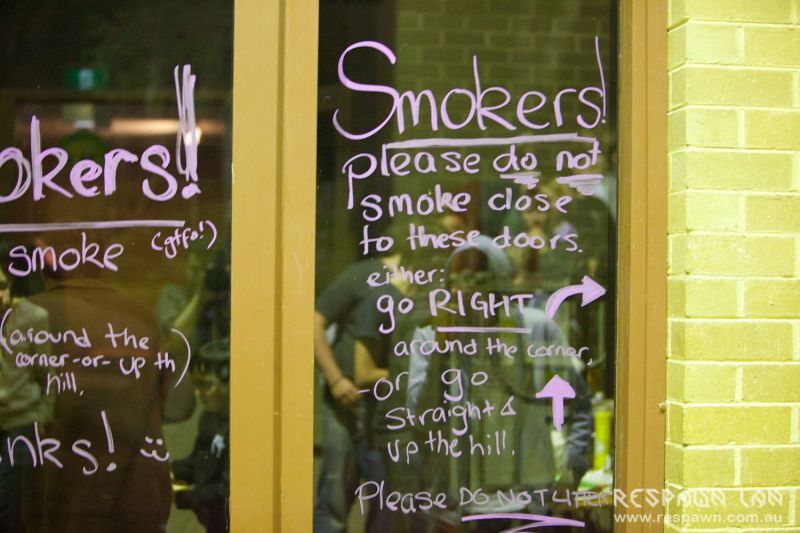 okers!
smoke (gtfo!)
(around the
corner-or-up th
hill.)
nks! :)
Smokers!
please do not
smoke close
to these doors.
either:
go RIGHT
around the corner,
-or go
Straight &
up the hill.
Please DO NOT LITTER
RESPAWN LAN
www.respawn.com.au